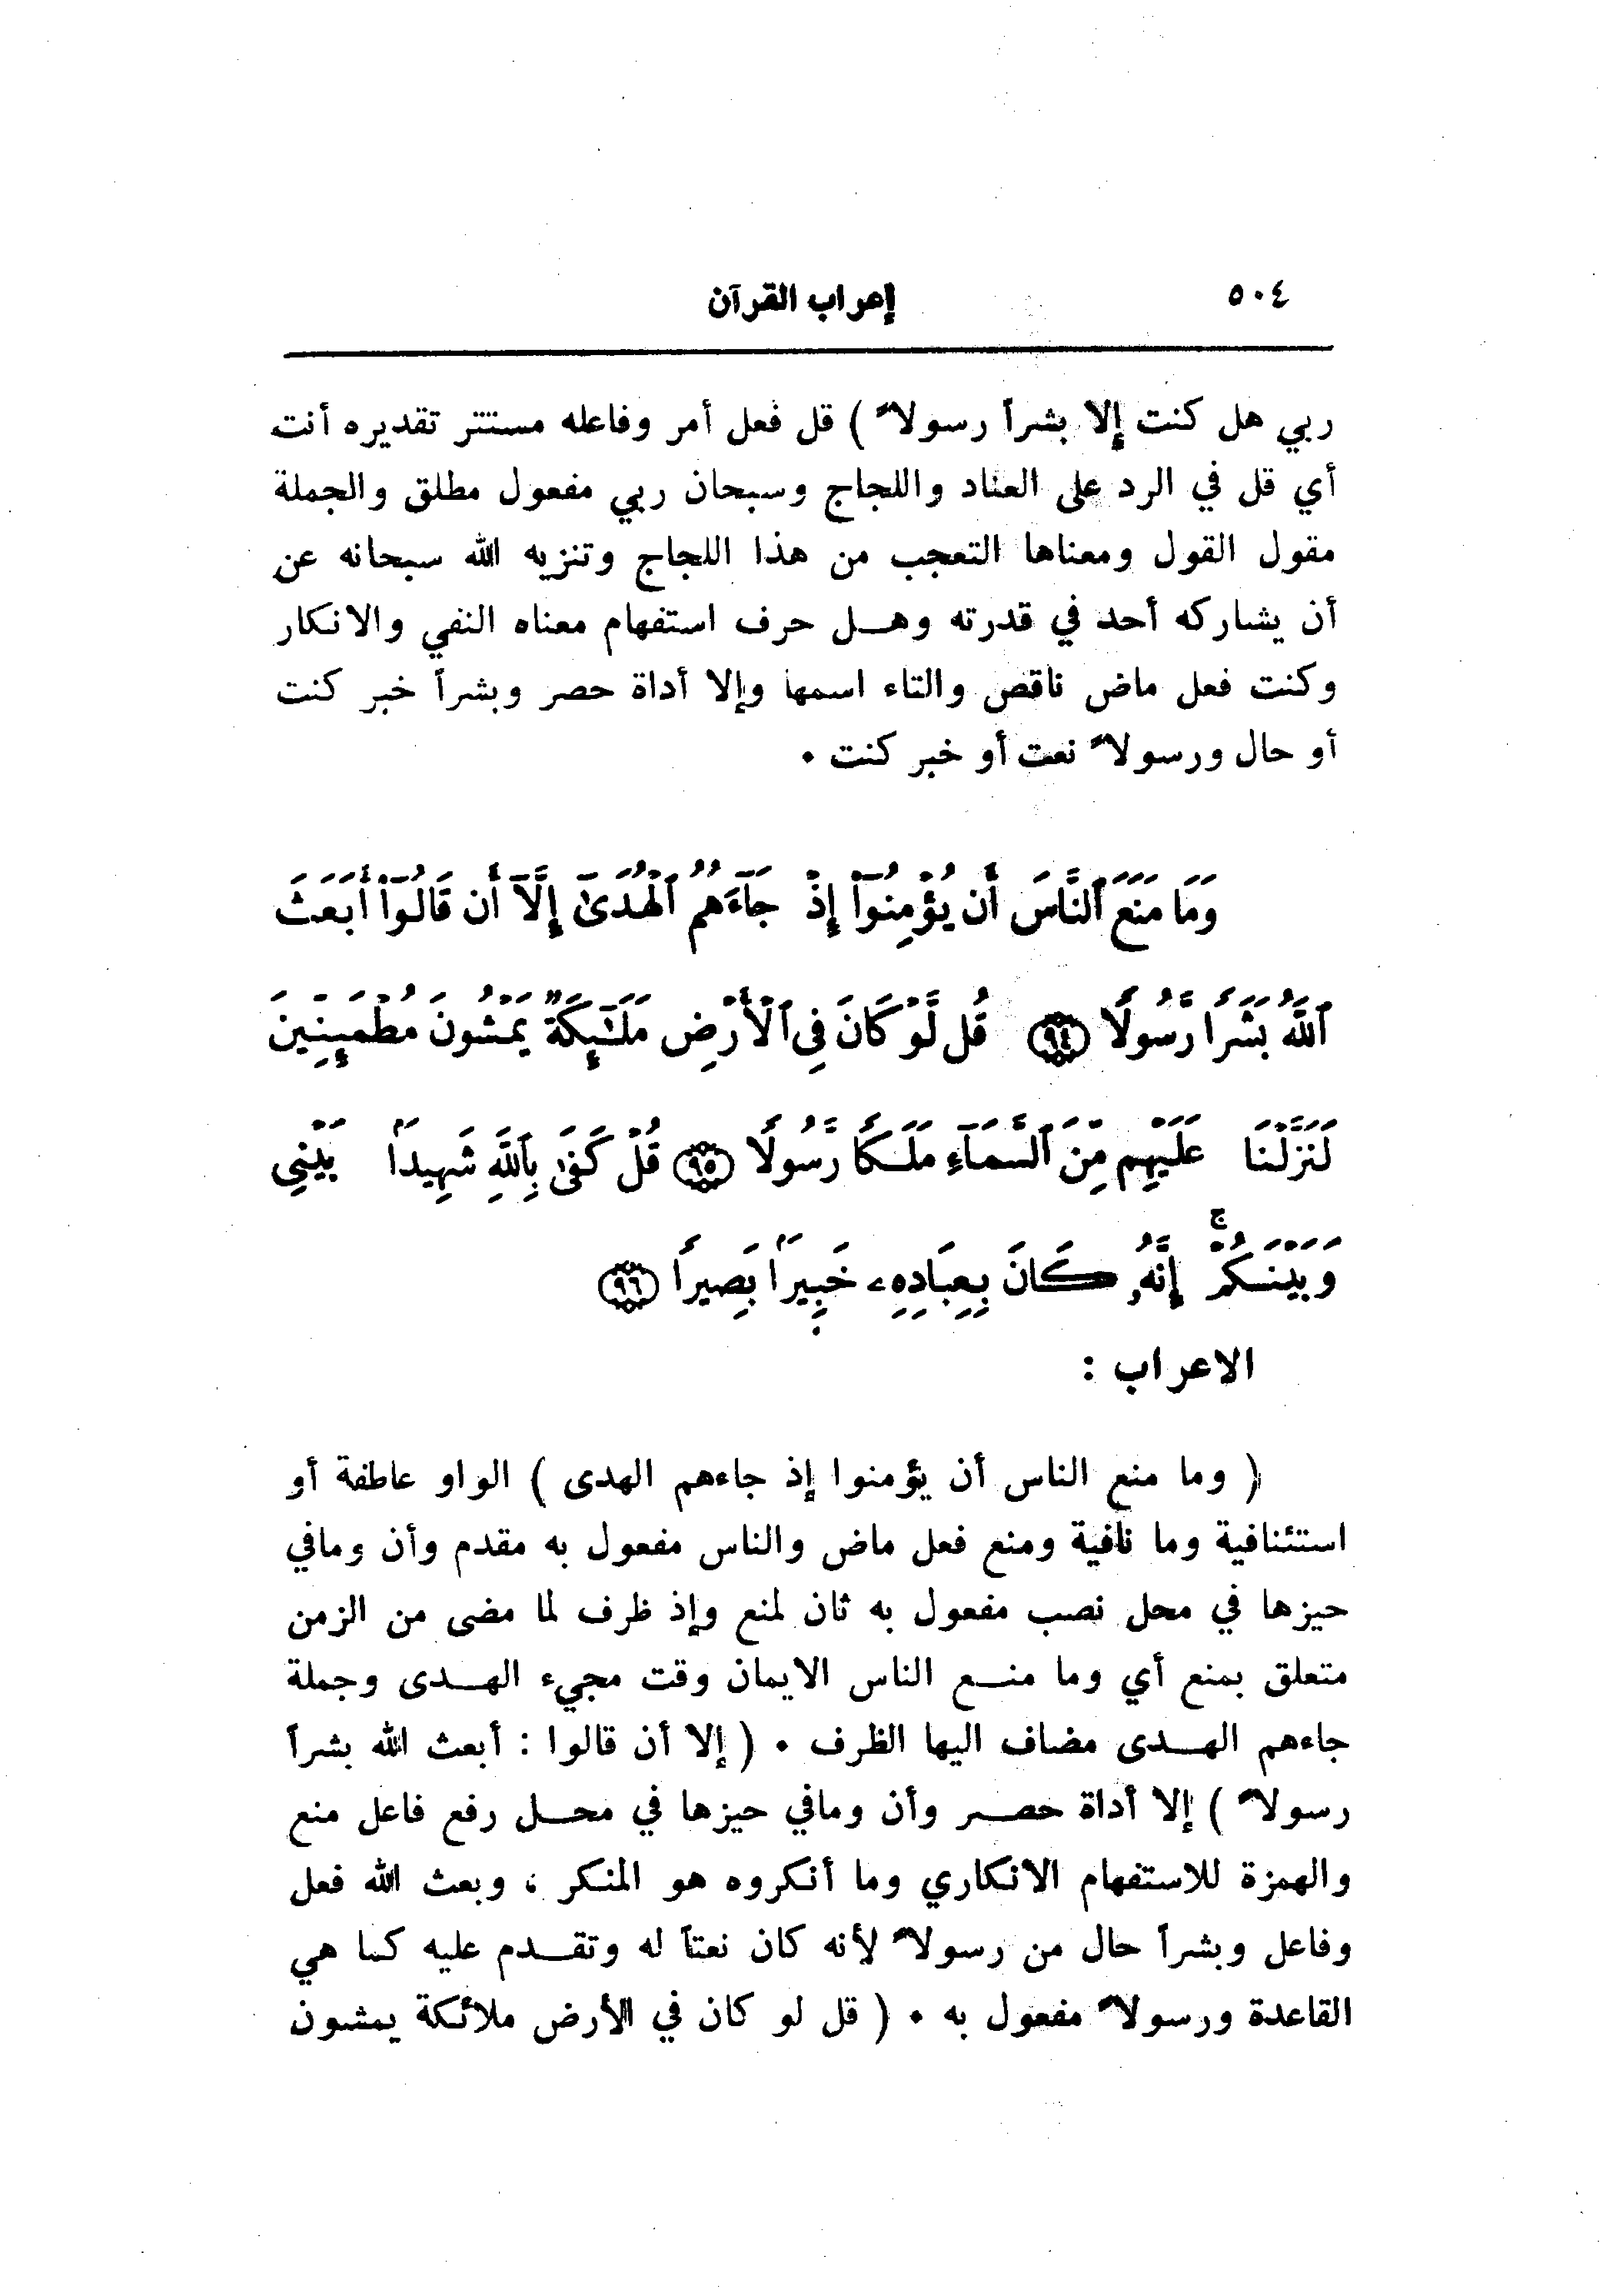 ٥٠٤ إعراب القرآن
ربي هل كنت إلا بشراً رسولاً ) قل فعل أمر وفاعله مستتر تقديره أنت
أي قل في الرد على العناد واللجاج وسبحان ربي مفعول مطلق والجملة
مقول القول ومعناها التعجب من هذا اللجاج وتنزيه الله سبحانه عن
أن يشاركه أحد في قدرته وهــل حرف استفهام معناه النفي والانكار
وكنت فعل ماض ناقص والتاء اسمها وإلا أداة حصر وبشراً خبر كنت
أو حال ورسولاً نعت أو خبر كنت ٠
وَمَا مَنَعَ ٱلنَّاسَ أَن يُؤْمِنُوٓا۟ إِذْ جَآءَهُمُ ٱلْهُدَىٰٓ إِلَّآ أَن قَالُوٓا۟ أَبَعَثَ
ٱللَّهُ بَشَرًا رَّسُولًا ٩٤ قُل لَّوْ كَانَ فِى ٱلْأَرْضِ مَلَٰٓئِكَةٌ يَمْشُونَ مُطْمَئِنِّينَ
لَنَزَّلْنَا عَلَيْهِم مِّنَ ٱلسَّمَآءِ مَلَكًا رَّسُولًا ٩٥ قُلْ كَفَىٰ بِٱللَّهِ شَهِيدًۢا بَيْنِى
وَبَيْنَكُمْ ۚ إِنَّهُۥ كَانَ بِعِبَادِهِۦ خَبِيرًۢا بَصِيرًا ٩٦
الاعراب :
( وما منع الناس أن يؤمنوا إذ جاءهم الهدى ) الواو عاطفة أو
استئنافية وما نافية ومنع فعل ماض والناس مفعول به مقدم وأن ومافي
حيزها في محل نصب مفعول به ثان لمنع وإذ ظرف لما مضى من الزمن
متعلق بمنع أي وما منــع الناس الايمان وقت مجيء الهــدى وجملة
جاءهم الهــدى مضاف اليها الظرف ٠ ( إلا أن قالوا : أبعث الله بشراً
رسولاً ) إلا أداة حصــر وأن ومافي حيزها في محــل رفع فاعل منع
والهمزة للاستفهام الانكاري وما أنكروه هو المنكر ، وبعث الله فعل
وفاعل وبشراً حال من رسولاً لأنه كان نعتاً له وتقــدم عليه كما هي
القاعدة ورسولاً مفعول به ٠ ( قل لو كان في الأرض ملائكة يمشون